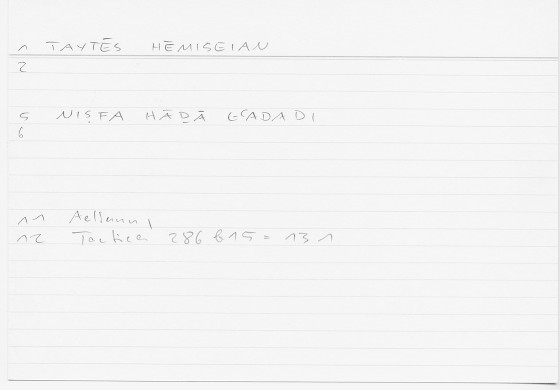 1 TAYTĒS HĒMISEIAN
2
5 NIṢFA HĀḎĀ L-ʿADADI
6
11 Aelianus,
12 Tactica 286 b15 = 13 1